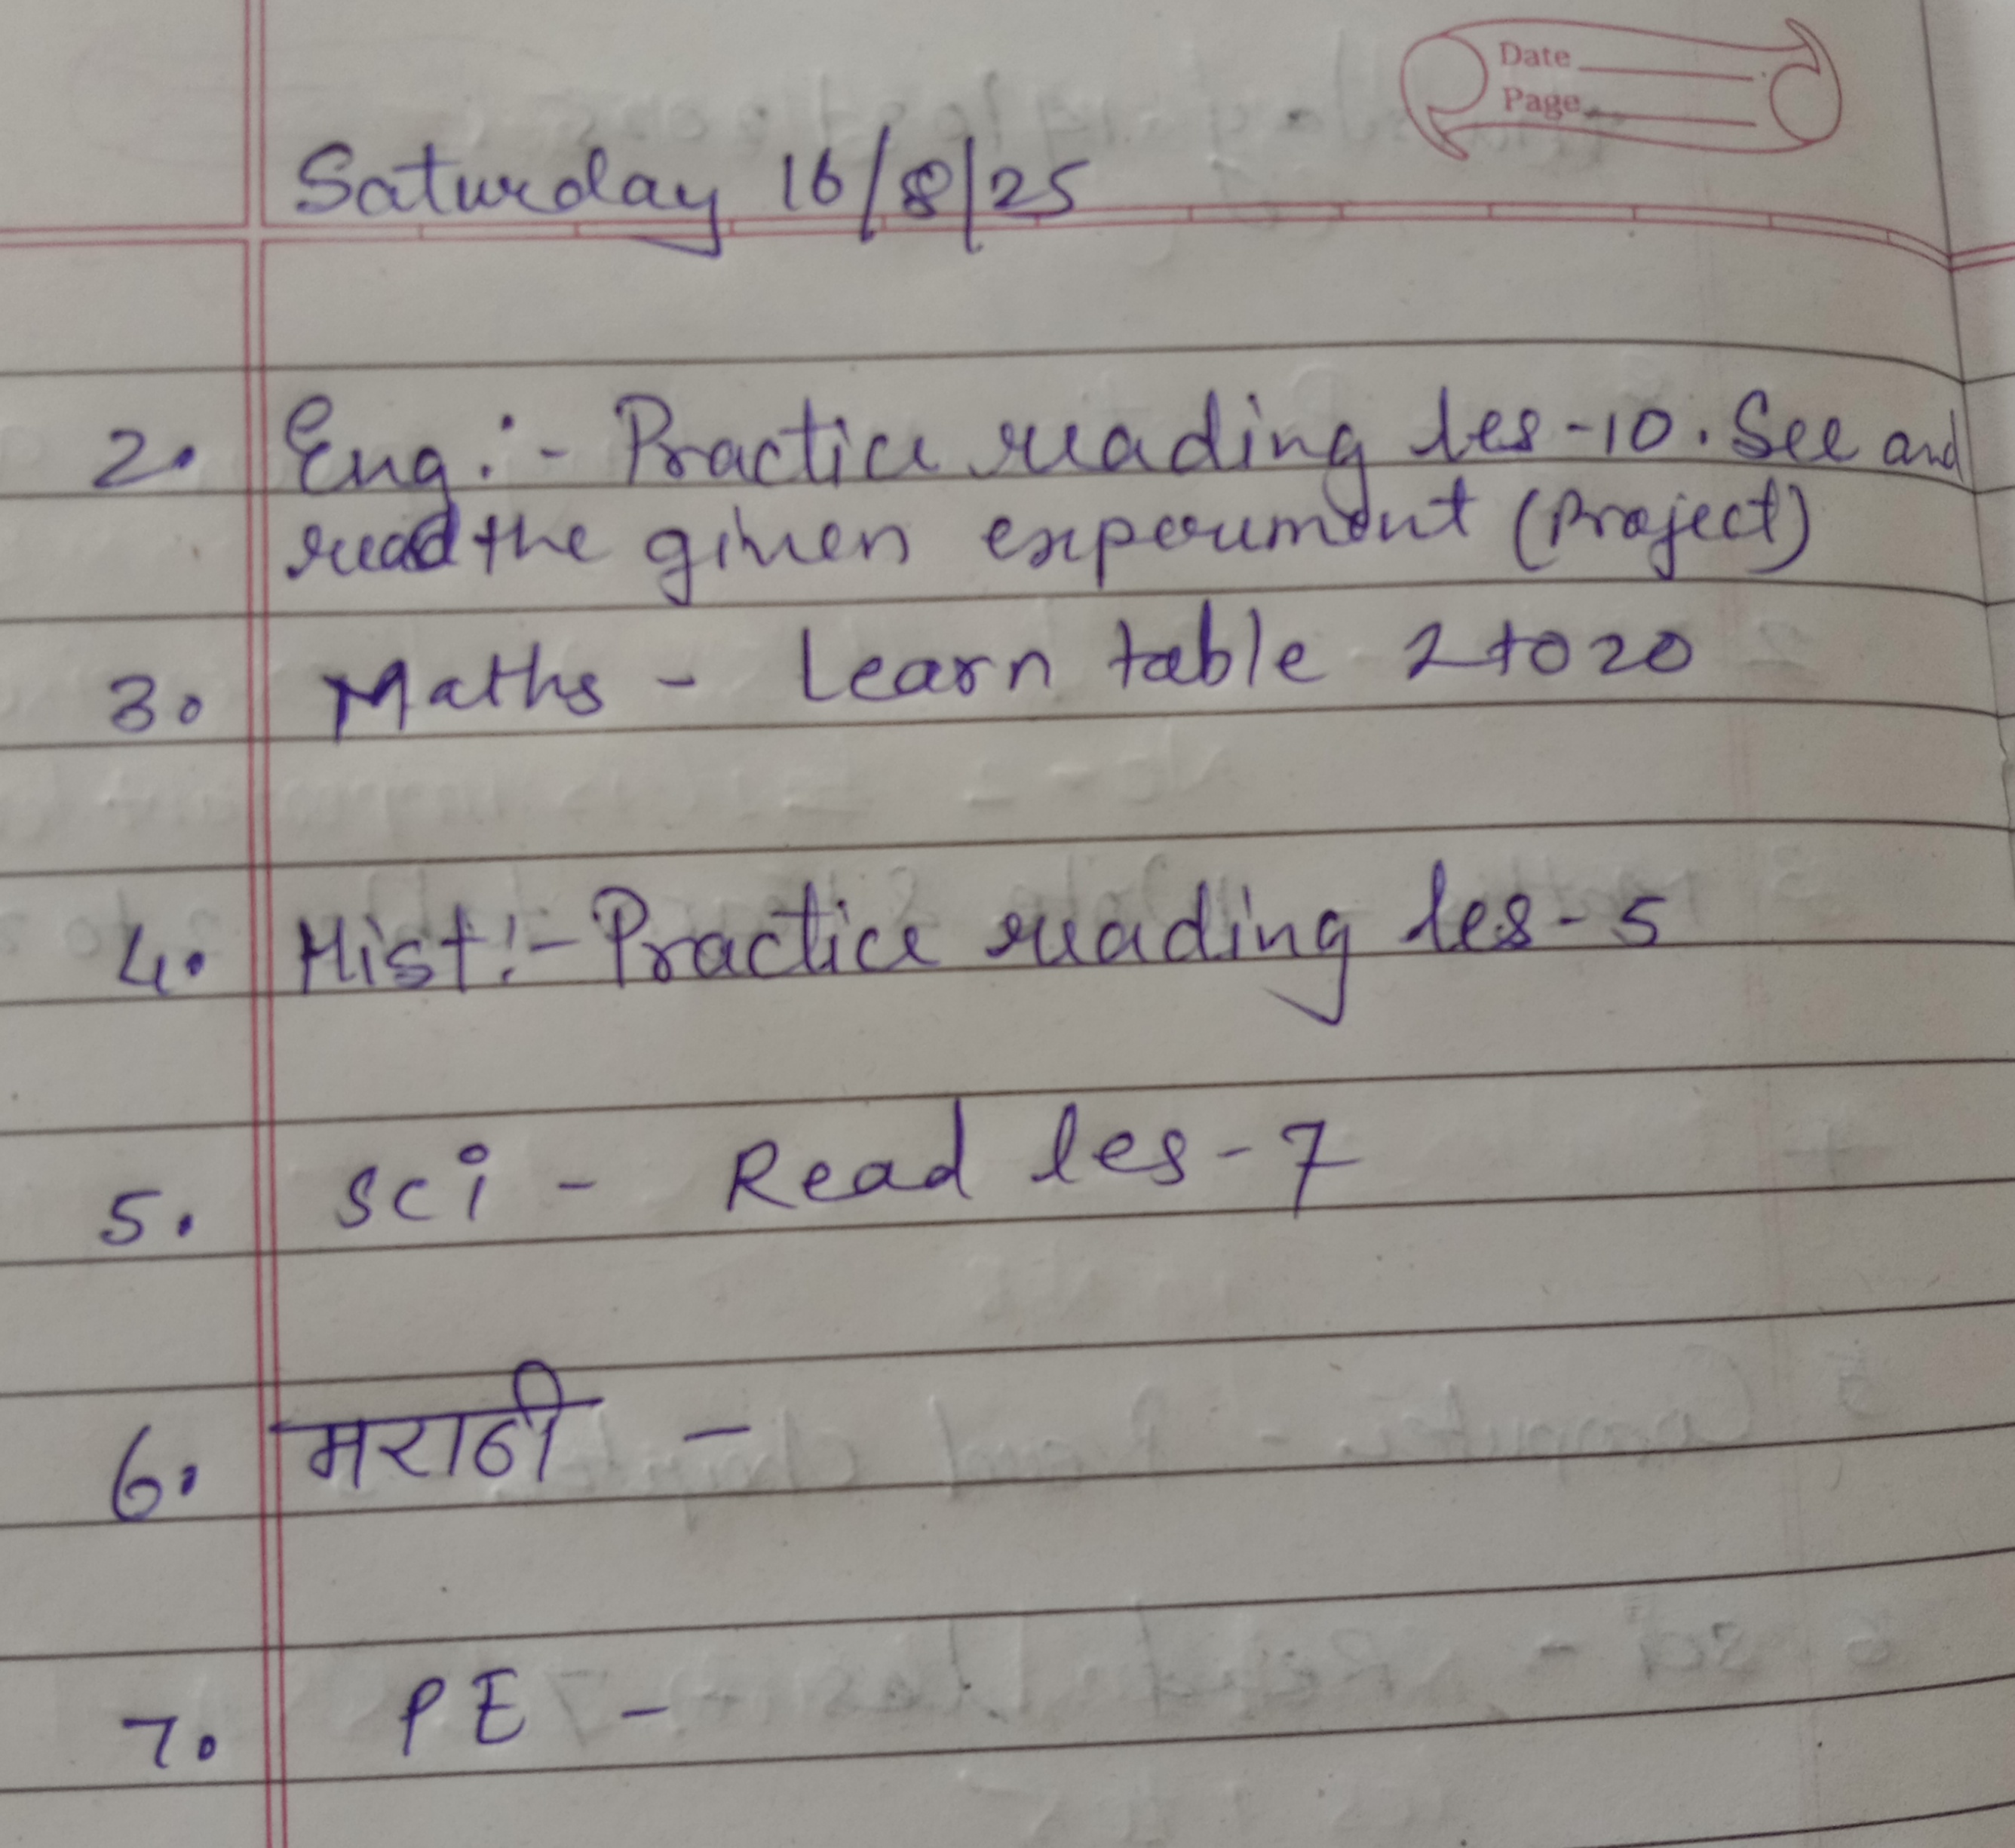 Date
Page
Saturday 16/8/25
2. Eng:- Practice reading les-10. See and
read the given experiment (Project)
3. Maths - Learn table 2 to 20
4. Hist:- Practice reading les-5
5. Sci - Read les-7
6. मराठी -
7. PE -